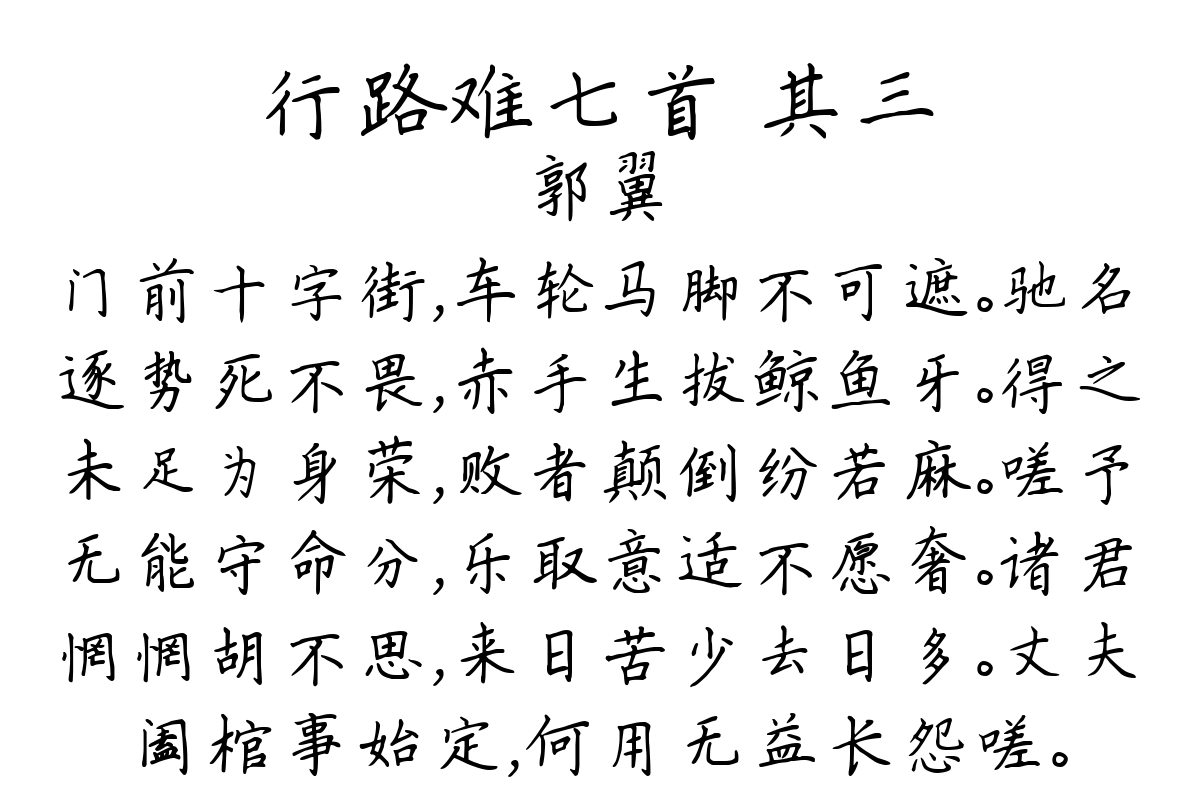 行路难七首 其三
郭翼
门前十字街,车轮马脚不可遮。驰名
逐势死不畏,赤手生拔鲸鱼牙。得之
未足为身荣,败者颠倒纷若麻。嗟予
无能守命分,乐取意适不愿奢。诸君
惘惘胡不思,来日苦少去日多。丈夫
阖棺事始定,何用无益长怨嗟。